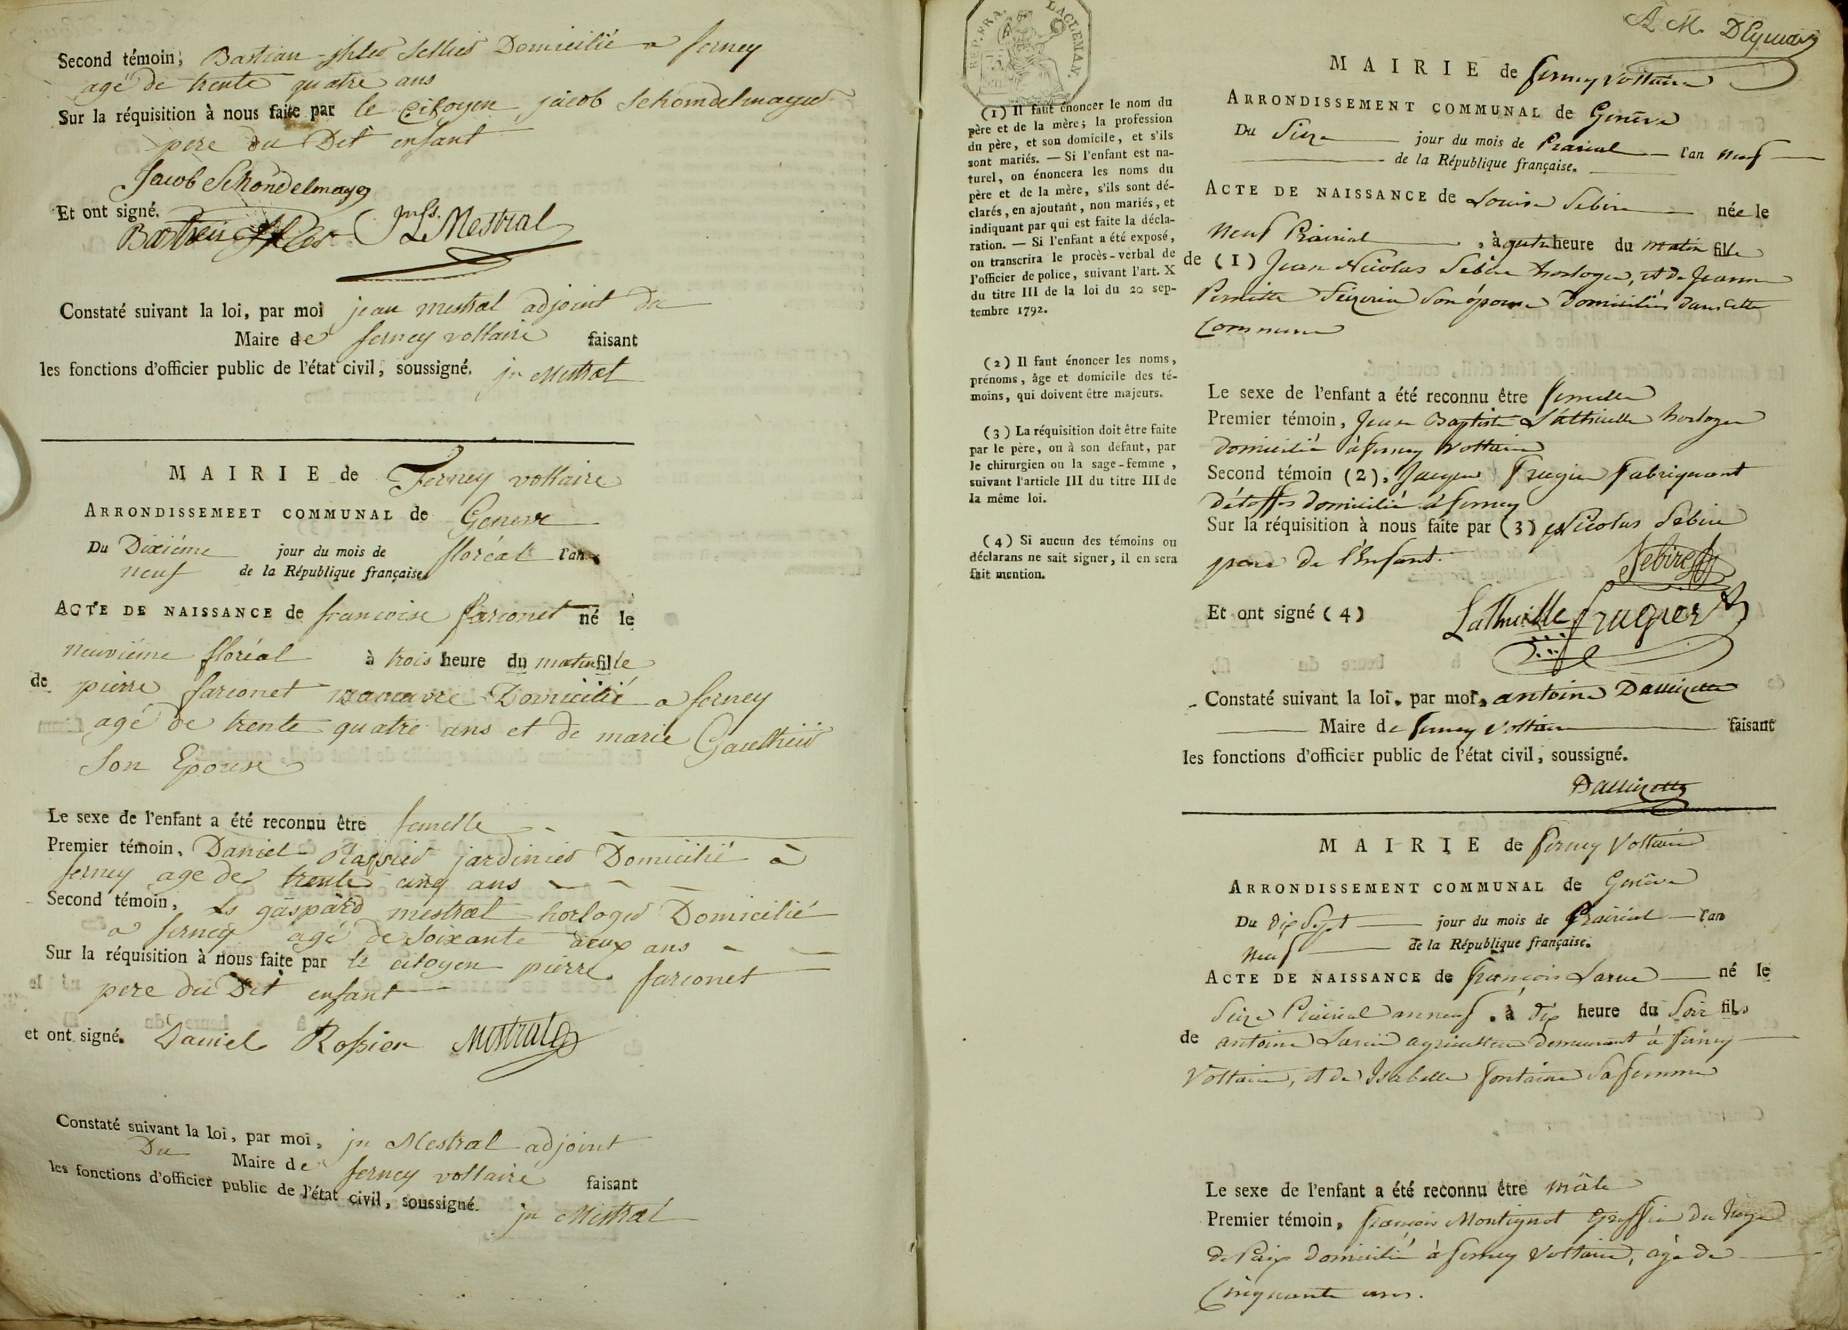 Second témoin, Bastian Domicilié a ferney
agé de trente quatre ans
Sur la réquisition à nous faite par le Citoyen jacob Schomdelmayer
pere du Dit enfant
Jacob Schondelmayer
Et ont signé.
Bastien Jn Ls. Mestral
Constaté suivant la loi, par moi jean mestral adjoint du
Maire de ferney voltaire faisant
les fonctions d'officier public de l'état civil, soussigné. jn Mestral
MAIRIE de Ferney voltaire
ARRONDISSEMEET COMMUNAL de Geneve
Du Dixiéme jour du mois de floréal l'an
neuf de la République française.
ACTE DE NAISSANCE de francoise farconet né le
neuviéme floréal à trois heure du matin fille
de pierre farconet manuvre Domicilié a ferney
agé de trente quatre ans et de marie Gaulthier
Son Epouse
Le sexe de l'enfant a été reconnu être femelle
Premier témoin, Daniel Rossier jardinier Domicilié à
ferney age de trente cinq ans
Second témoin, Ls gaspard mestral horloger Domicilié
a ferney agé de Soixante deux ans
Sur la réquisition à nous faite par le citoyen pierre farconet
pere du Dit enfant
et ont signé. Daniel Roſsier Mestral
Constaté suivant la loi, par moi, jn Mestral adjoint
Du Maire de ferney voltaire faisant
les fonctions d'officier public de l'état civil, soussigné. jn Mestral
REP. FRA.
(1) Il faut énoncer le nom du
père et de la mère; la profession
du père, et son domicile, et s'ils
sont mariés. — Si l'enfant est na-
turel, on énoncera les noms du
père et de la mère, s'ils sont dé-
clarés, en ajoutant, non mariés, et
indiquant par qui est faite la décla-
ration. — Si l'enfant a été exposé,
on transcrira le procès-verbal de
l'officier de police, suivant l'art. X
du titre III de la loi du 20 sep-
tembre 1792.
(2) Il faut énoncer les noms,
prénoms, âge et domicile des té-
moins, qui doivent être majeurs.
(3) La réquisition doit être faite
par le père, ou à son défaut, par
le chirurgien ou la sage-femme,
suivant l'article III du titre III de
la même loi.
(4) Si aucun des témoins ou
déclarans ne sait signer, il en sera
fait mention.
MAIRIE de ferney Voltaire
ARRONDISSEMENT COMMUNAL de Genêve
Du Seize jour du mois de Prairial l'an neuf
de la République française.
ACTE DE NAISSANCE de Louise Sebire née le
Neuf Prairial, à quatre heure du matin fille
de (1) Jean Nicolas Sebire horloger, et de Jeanne
Pernette Son épouse Domiciliés dans Cette
Commune
Le sexe de l'enfant a été reconnu être femelle
Premier témoin, Jean Baptiste Lathuille horloger
domicilié à ferney Voltaire
Second témoin (2), Jacques Frugier Fabriquant
d'étoffes domicilié à ferney
Sur la réquisition à nous faite par (3) Nicolas Sebire
pere de l'Enfant.
Sebire
Et ont signé (4) Lathuille frugier
Constaté suivant la loi, par moi, antoine
Maire de ferney Voltaire faisant
les fonctions d'officier public de l'état civil, soussigné.
MAIRIE de ferney Voltaire
ARRONDISSEMENT COMMUNAL de Genêve
Du dix Sept jour du mois de Prairial l'an
Neuf de la République française.
ACTE DE NAISSANCE de françois Larue né le
Seize Prairial an neuf, à dix heure du Soir fils
de antoine Larue agriculteur demeurant à ferney
Voltaire, et de Isabelle fontaine Sa femme
Le sexe de l'enfant a été reconnu être mâle
Premier témoin, françois Montignot Greffier du Juge
de Paix domicilié à ferney Voltaire, âgé de
Cinquante ans.